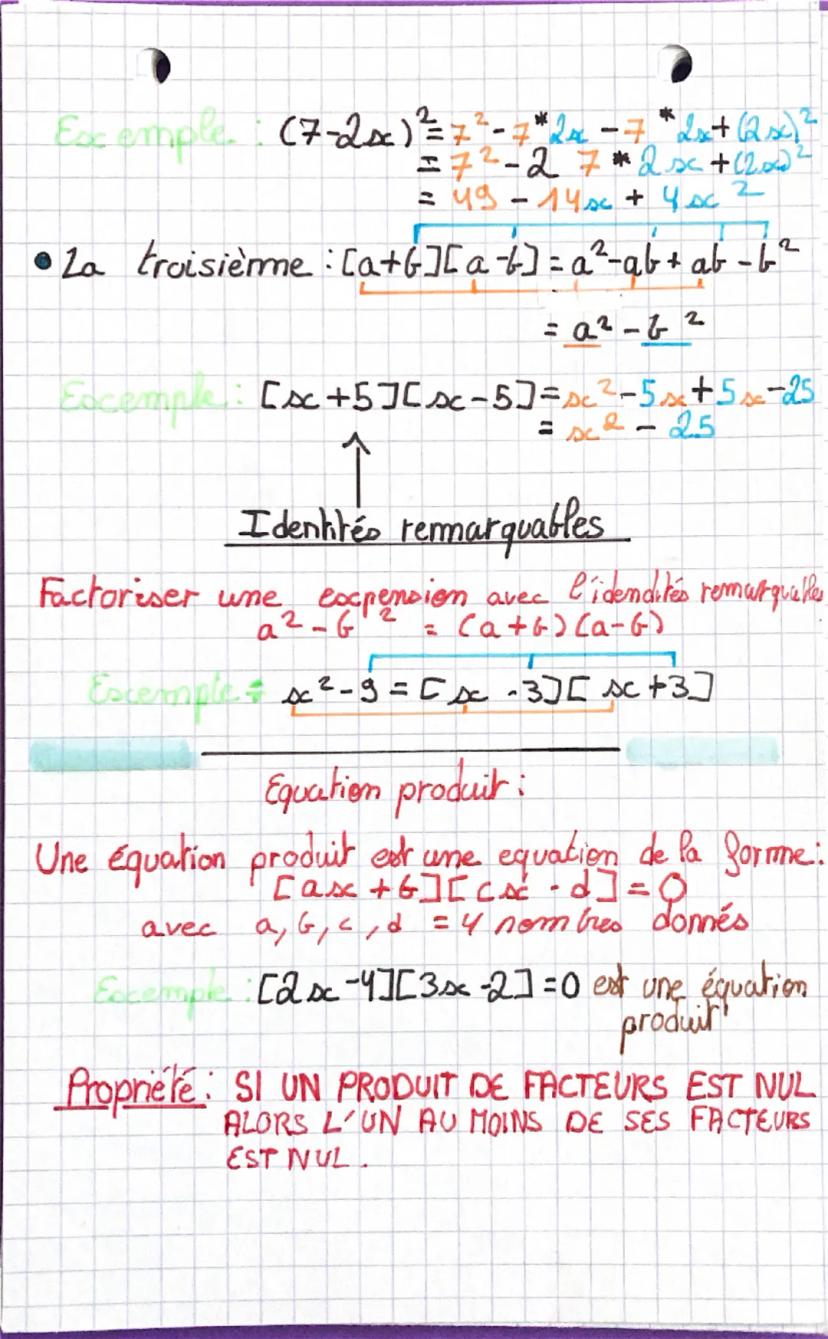 Excemple : (7-2x)²= 7²- 7*2x - 7 *2x+(2x)²
= 7² - 2 7 * 2x +(2x)²
= 49 - 14x + 4x²
• La troisième : [a+b][a-b] = a²-ab+ ab - b²
= a² - b ²
Excemple : [x+5][x-5]= x²-5x+5x-25
= x² - 25
Identités remmarquables
Factoriser une excpension avec l'idendités remarquables
a² - b ² = (a+b)(a-b)
Excemple : x²-9 = [x -3][ x+3]
Equation produit :
Une équation produit est une equation de la forme :
[ax + b][cx - d] = 0
avec a, b, c, d = 4 nombres donnés
Excemple : [2x-4][3x-2] =0 est une équation
produit
Propriété : SI UN PRODUIT DE FACTEURS EST NUL
ALORS L'UN AU MOINS DE SES FACTEURS
EST NUL.